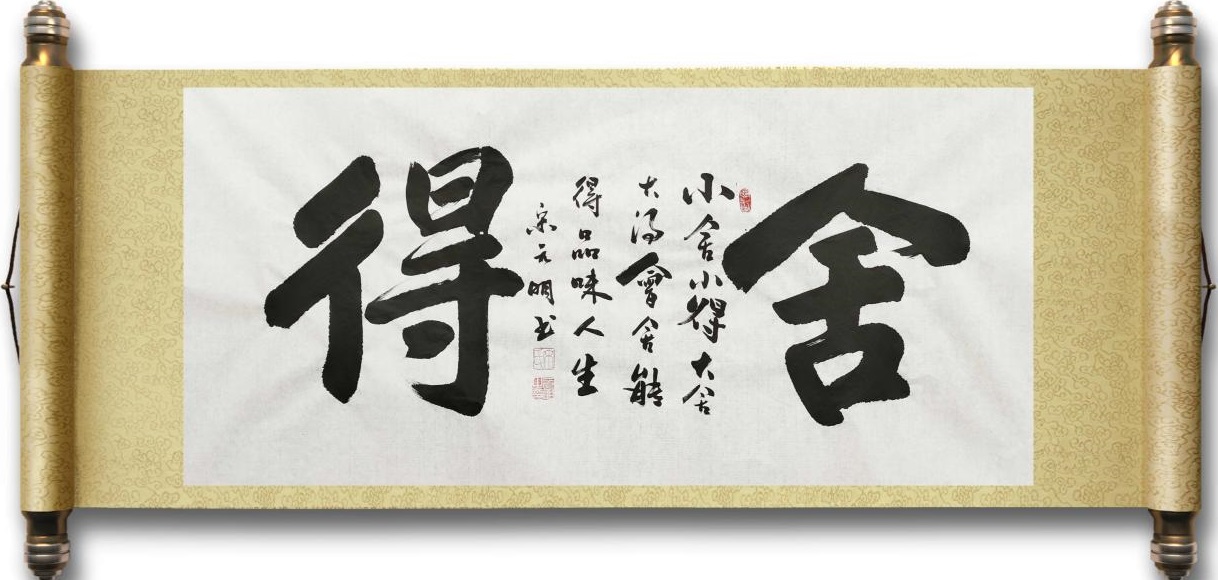 舍
小舍小得大舍
大得會舍能
得品味人生
宋元明书
得